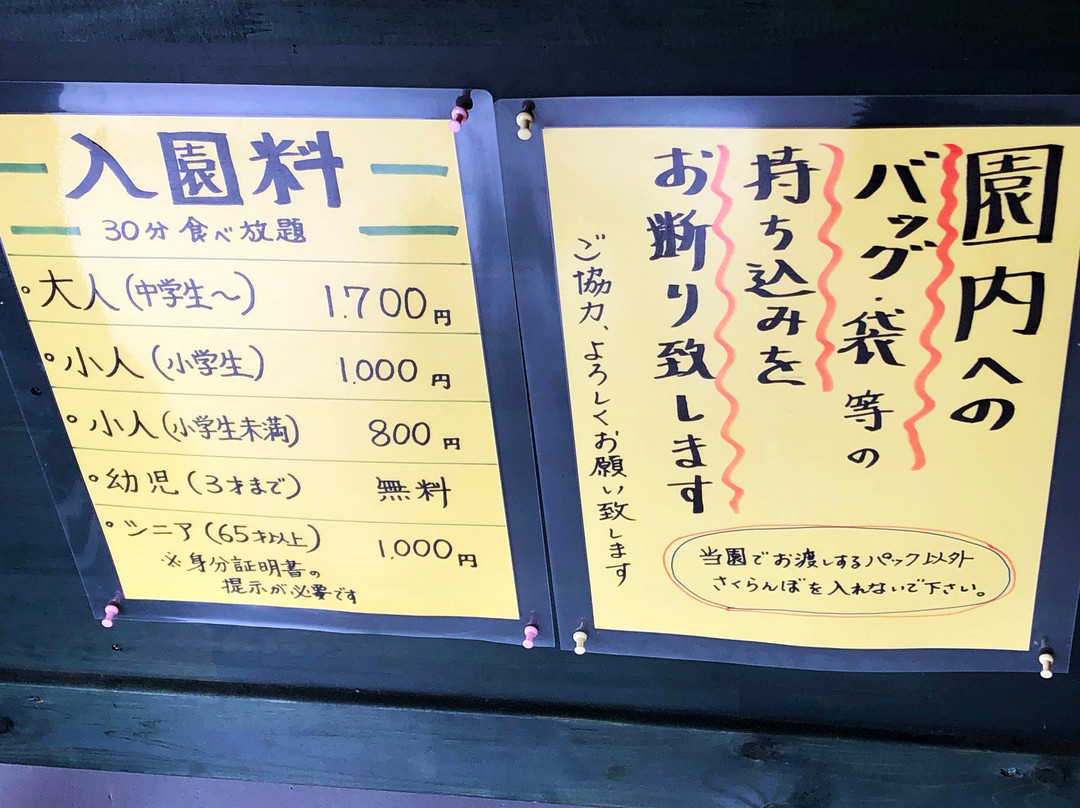 入園料
30分食べ放題
。大人(中学生〜) 1.700円
。小人(小学生) 1.000円
。小人(小学生未満) 800円
。幼児(3才まで) 無料
。シニア(65才以上) 1,000円
※身分証明書の
提示が必要です
園内への
バッグ・袋等の
持ち込みを
お断り致します
ご協力、よろしくお願い致します
当園でお渡しするパック以外
さくらんぼを入れないで下さい。